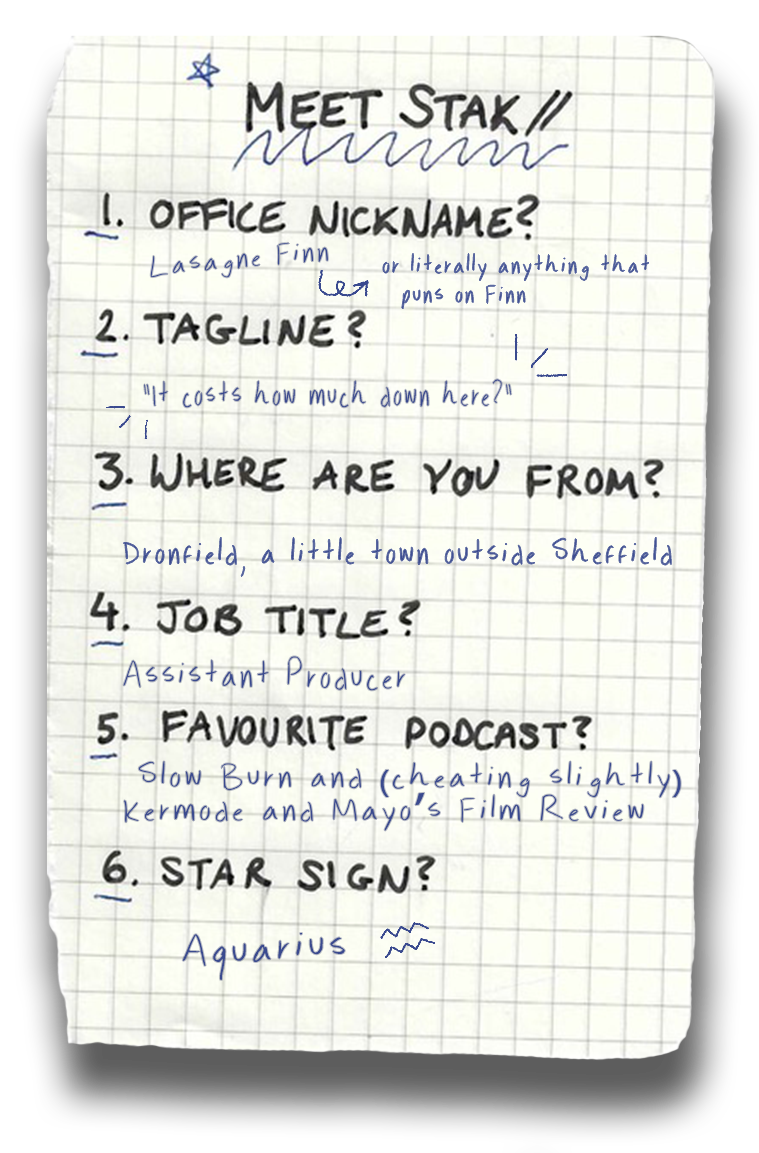 MEET STAK//
1. OFFICE NICKNAME?
Lasagne Finn
or literally anything that
puns on Finn
2. TAGLINE?
"It costs how much down here?"
3. WHERE ARE YOU FROM?
Dronfield, a little town outside Sheffield
4. JOB TITLE?
Assistant Producer
5. FAVOURITE PODCAST?
Slow Burn and (cheating slightly)
Kermode and Mayo's Film Review
6. STAR SIGN?
Aquarius